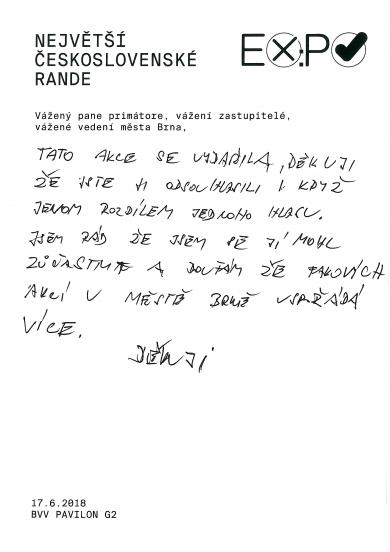 NEJVĚTŠÍ
ČESKOSLOVENSKÉ
RANDE
EXPO
Vážený pane primátore, vážení zastupitelé,
vážené vedení města Brna,
TATO AKCE SE VYDAŘILA, DĚKUJI
ŽE JSTE JI ODSOUHLASILI I KDYŽ
JENOM ROZDÍLEM JEDNOHO HLASU.
JSEM RÁD ŽE JSEM SE JÍ MOHL
ZÚČASTNIT A DOUFÁM ŽE TAKOVÝCH
AKCÍ V MĚSTĚ BRNĚ USPOŘÁDÁ
VÍCE.
DĚKUJI
17.6.2018
BVV PAVILON G2